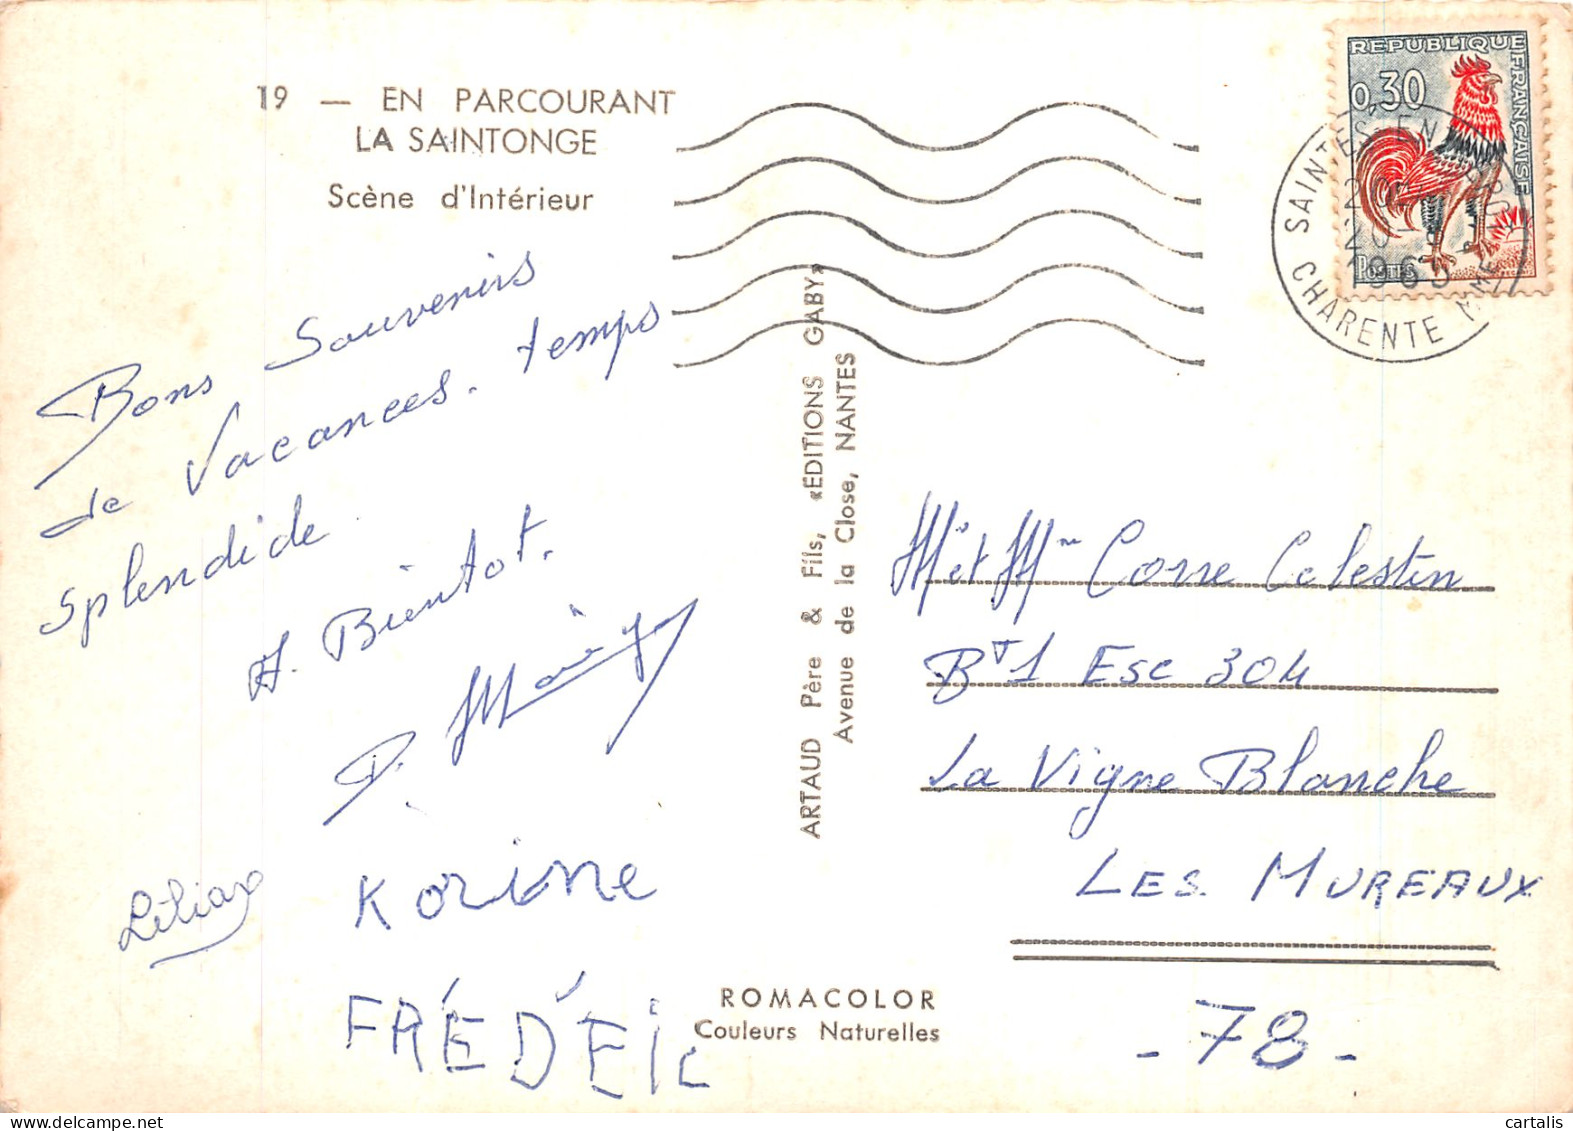 19 — EN PARCOURANT
LA SAINTONGE
Scène d'Intérieur
Bons Souvenirs
de Vacances. temps
splendide
A. Bientot.
Korine
FRÉDÉIC
ARTAUD Père & Fils, «EDITIONS GABY»
Avenue de la Close, NANTES
ROMACOLOR
Couleurs Naturelles
REPUBLIQUE FRANÇAISE
0,30
POSTES
CHARENTE MME
1965
Mr et Mme Corre Celestin
BT1 Esc 304
La Vigne Blanche
LES MUREAUX
- 78 -
cartalis